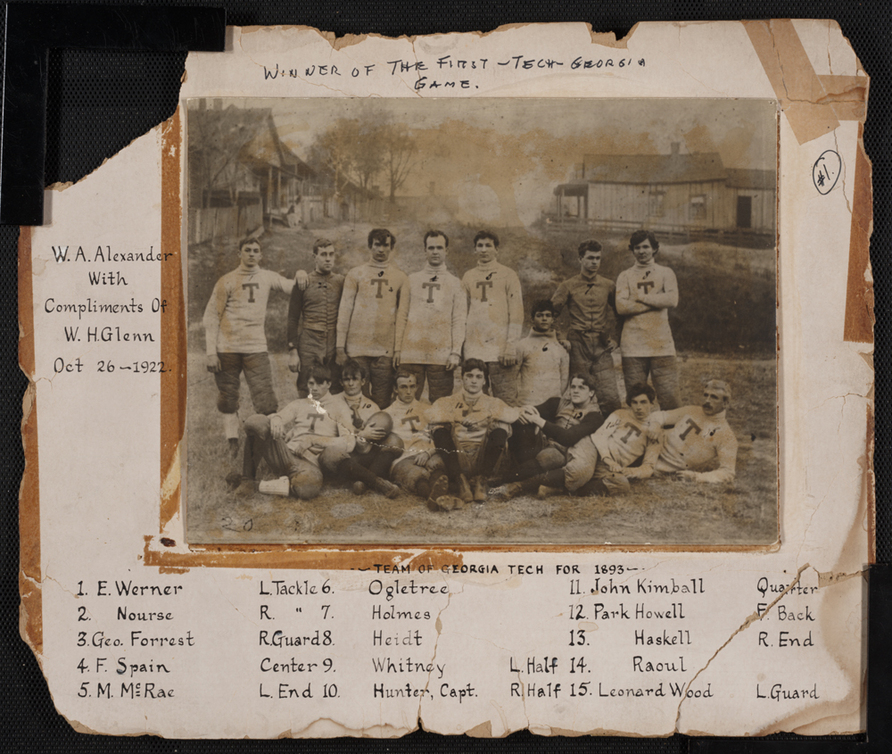 WINNER OF THE FIRST -TECH- GEORGIA
GAME.
#1.
W. A. Alexander
With
Compliments Of
W. H. Glenn
Oct 26-1922.
T
T
T
T
T
T
T
T
T
20
-TEAM OF GEORGIA TECH FOR 1893-
1. E. Werner L. Tackle 6. Ogletree 11. John Kimball Quarter
2. Nourse R. " 7. Holmes 12. Park Howell F. Back
3. Geo. Forrest R. Guard 8. Heidt 13. Haskell R. End
4. F. Spain Center 9. Whitney L. Half 14. Raoul
5. M. McRae L. End 10. Hunter, Capt. R. Half 15. Leonard Wood L. Guard